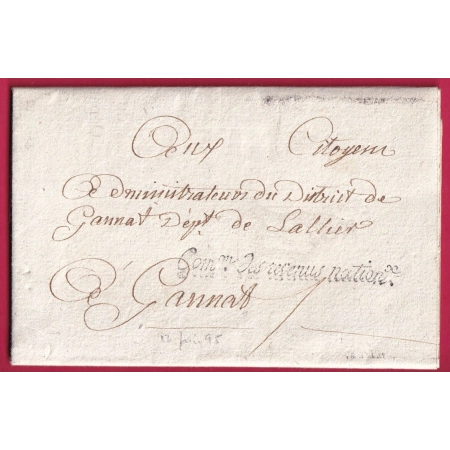 Aux Citoyens
Administrateurs du District de
Gannat Dépt. de Lallier
Comon. des revenus nationx.
A Gannat
12 juin 95